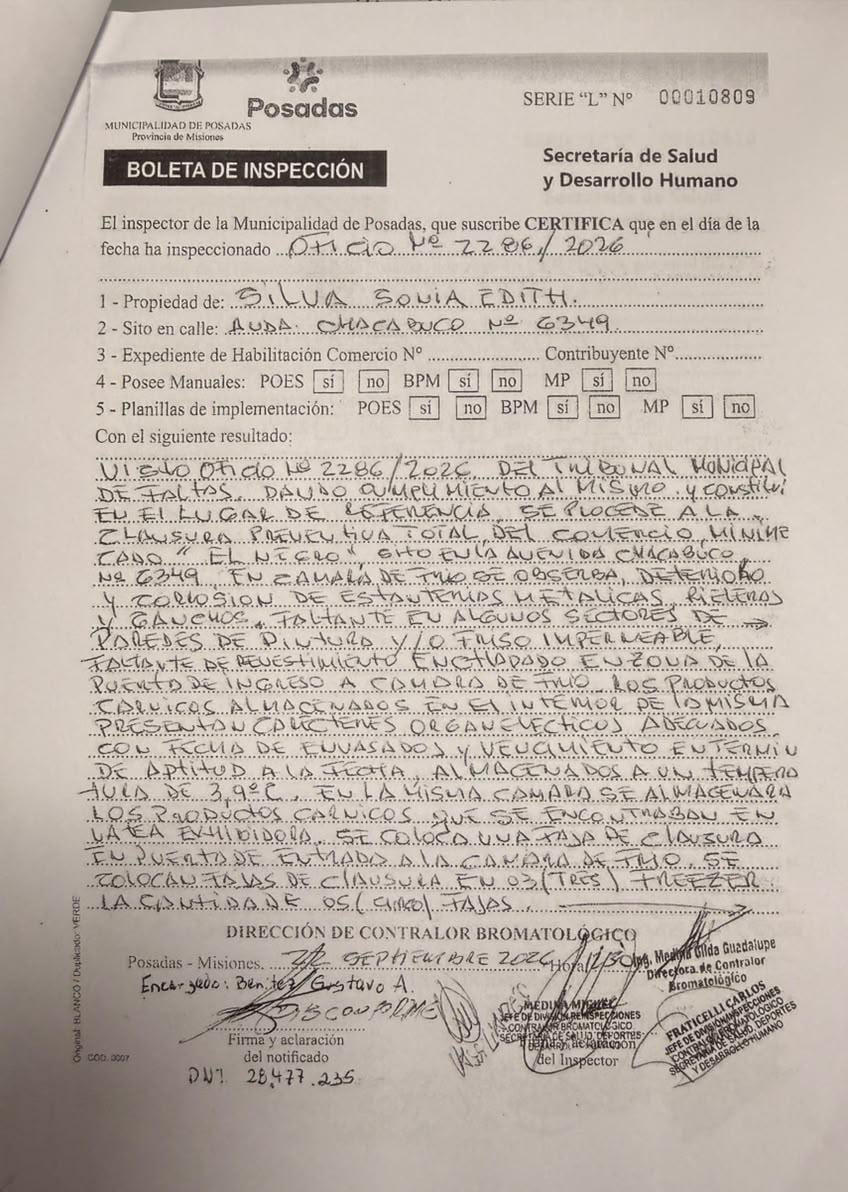 Posadas
MUNICIPALIDAD DE POSADAS
Provincia de Misiones
SERIE "L" Nº 00010809
BOLETA DE INSPECCIÓN
Secretaría de Salud
y Desarrollo Humano
El inspector de la Municipalidad de Posadas, que suscribe CERTIFICA que en el día de la
fecha ha inspeccionado OFICIO Nº 2286/2026
1 - Propiedad de: SILVA SONIA EDITH.
2 - Sito en calle: AVDA. CHACABUCO Nº 6349
3 - Expediente de Habilitación Comercio Nº Contribuyente Nº
4 - Posee Manuales: POES sí no BPM sí no MP sí no
5 - Planillas de implementación: POES sí no BPM sí no MP sí no
Con el siguiente resultado:
VISTO OFICIO Nº 2286/2026 DEL TRIBUNAL MUNICIPAL
DE FALTAS, DANDO CUMPLIMIENTO AL MISMO Y CONSTITUI
EN EL LUGAR DE REFERENCIA, SE PROCEDE A LA
CLAUSURA PREVENTIVA TOTAL, DEL COMERCIO, MINIME
CADO "EL NEGRO", SITO EN LA AVENIDA CHACABUCO
Nº 6349 EN CAMARA DE FRIO SE OBSERBA, DETERIORO
Y CORROSION DE ESTANTERIAS METALICAS, RIELERAS
Y GANCHOS, FALTANTE EN ALGUNOS SECTORES DE
PAREDES DE PINTURA Y/O FRISO IMPERMEABLE,
FALTANTE DE REVESTIMIENTO ENCHAPADO EN ZONA DE LA
PUERTA DE INGRESO A CAMARA DE FRIO. LOS PRODUCTOS
CARNICOS ALMACENADOS EN EL INTERIOR DE LA MISMA
PRESENTAN CARECTERES ORGANELECTICOS ADECUADOS,
CON FECHA DE ENVASADOS Y VENCIMIENTO EN TERMIN
DE APTITUD A LA FECHA, ALMACENADOS A UN TEMPERA
TURA DE 3,9º C, EN LA MISMA CAMARA SE ALMACENARA
LOS PRODUCTOS CARNICOS QUE SE ENCONTRABAN EN
EXHIBIDORA, SE COLOCA UNA FAJA DE CLAUSURA
EN PUERTA DE ENTRADA A LA CAMARA DE FRIO. SE
COLOCAN FAJAS DE CLAUSURA EN 03 (TRES) FREEZER
LA CANTIDA DE 05 (CINCO) FAJAS.
DIRECCIÓN DE CONTRALOR BROMATOLÓGICO
Posadas - Misiones. SEPTIEMBRE 2026 Hora
Ing. Medina Gilda Guadalupe
Directora de Contralor
Bromatológico
Encargado: Benitez Gustavo A.
DISCONFORME
Firma y aclaración
del notificado
DNI 28.477.235
MEDINA MIGUEL
JEFE DE DIVISIÓN REINSPECCIONES
CONTRALOR BROMATOLÓGICO
del Inspector
FRATICELLI CARLOS
JEFE DE DIVISIÓN INSPECCIONES
CONTRALOR BROMATOLÓGICO
SECRETARÍA DE SALUD, DEPORTES
Y DESARROLLO HUMANO
Original: BLANCO / Duplicado: VERDE
COD. 0007